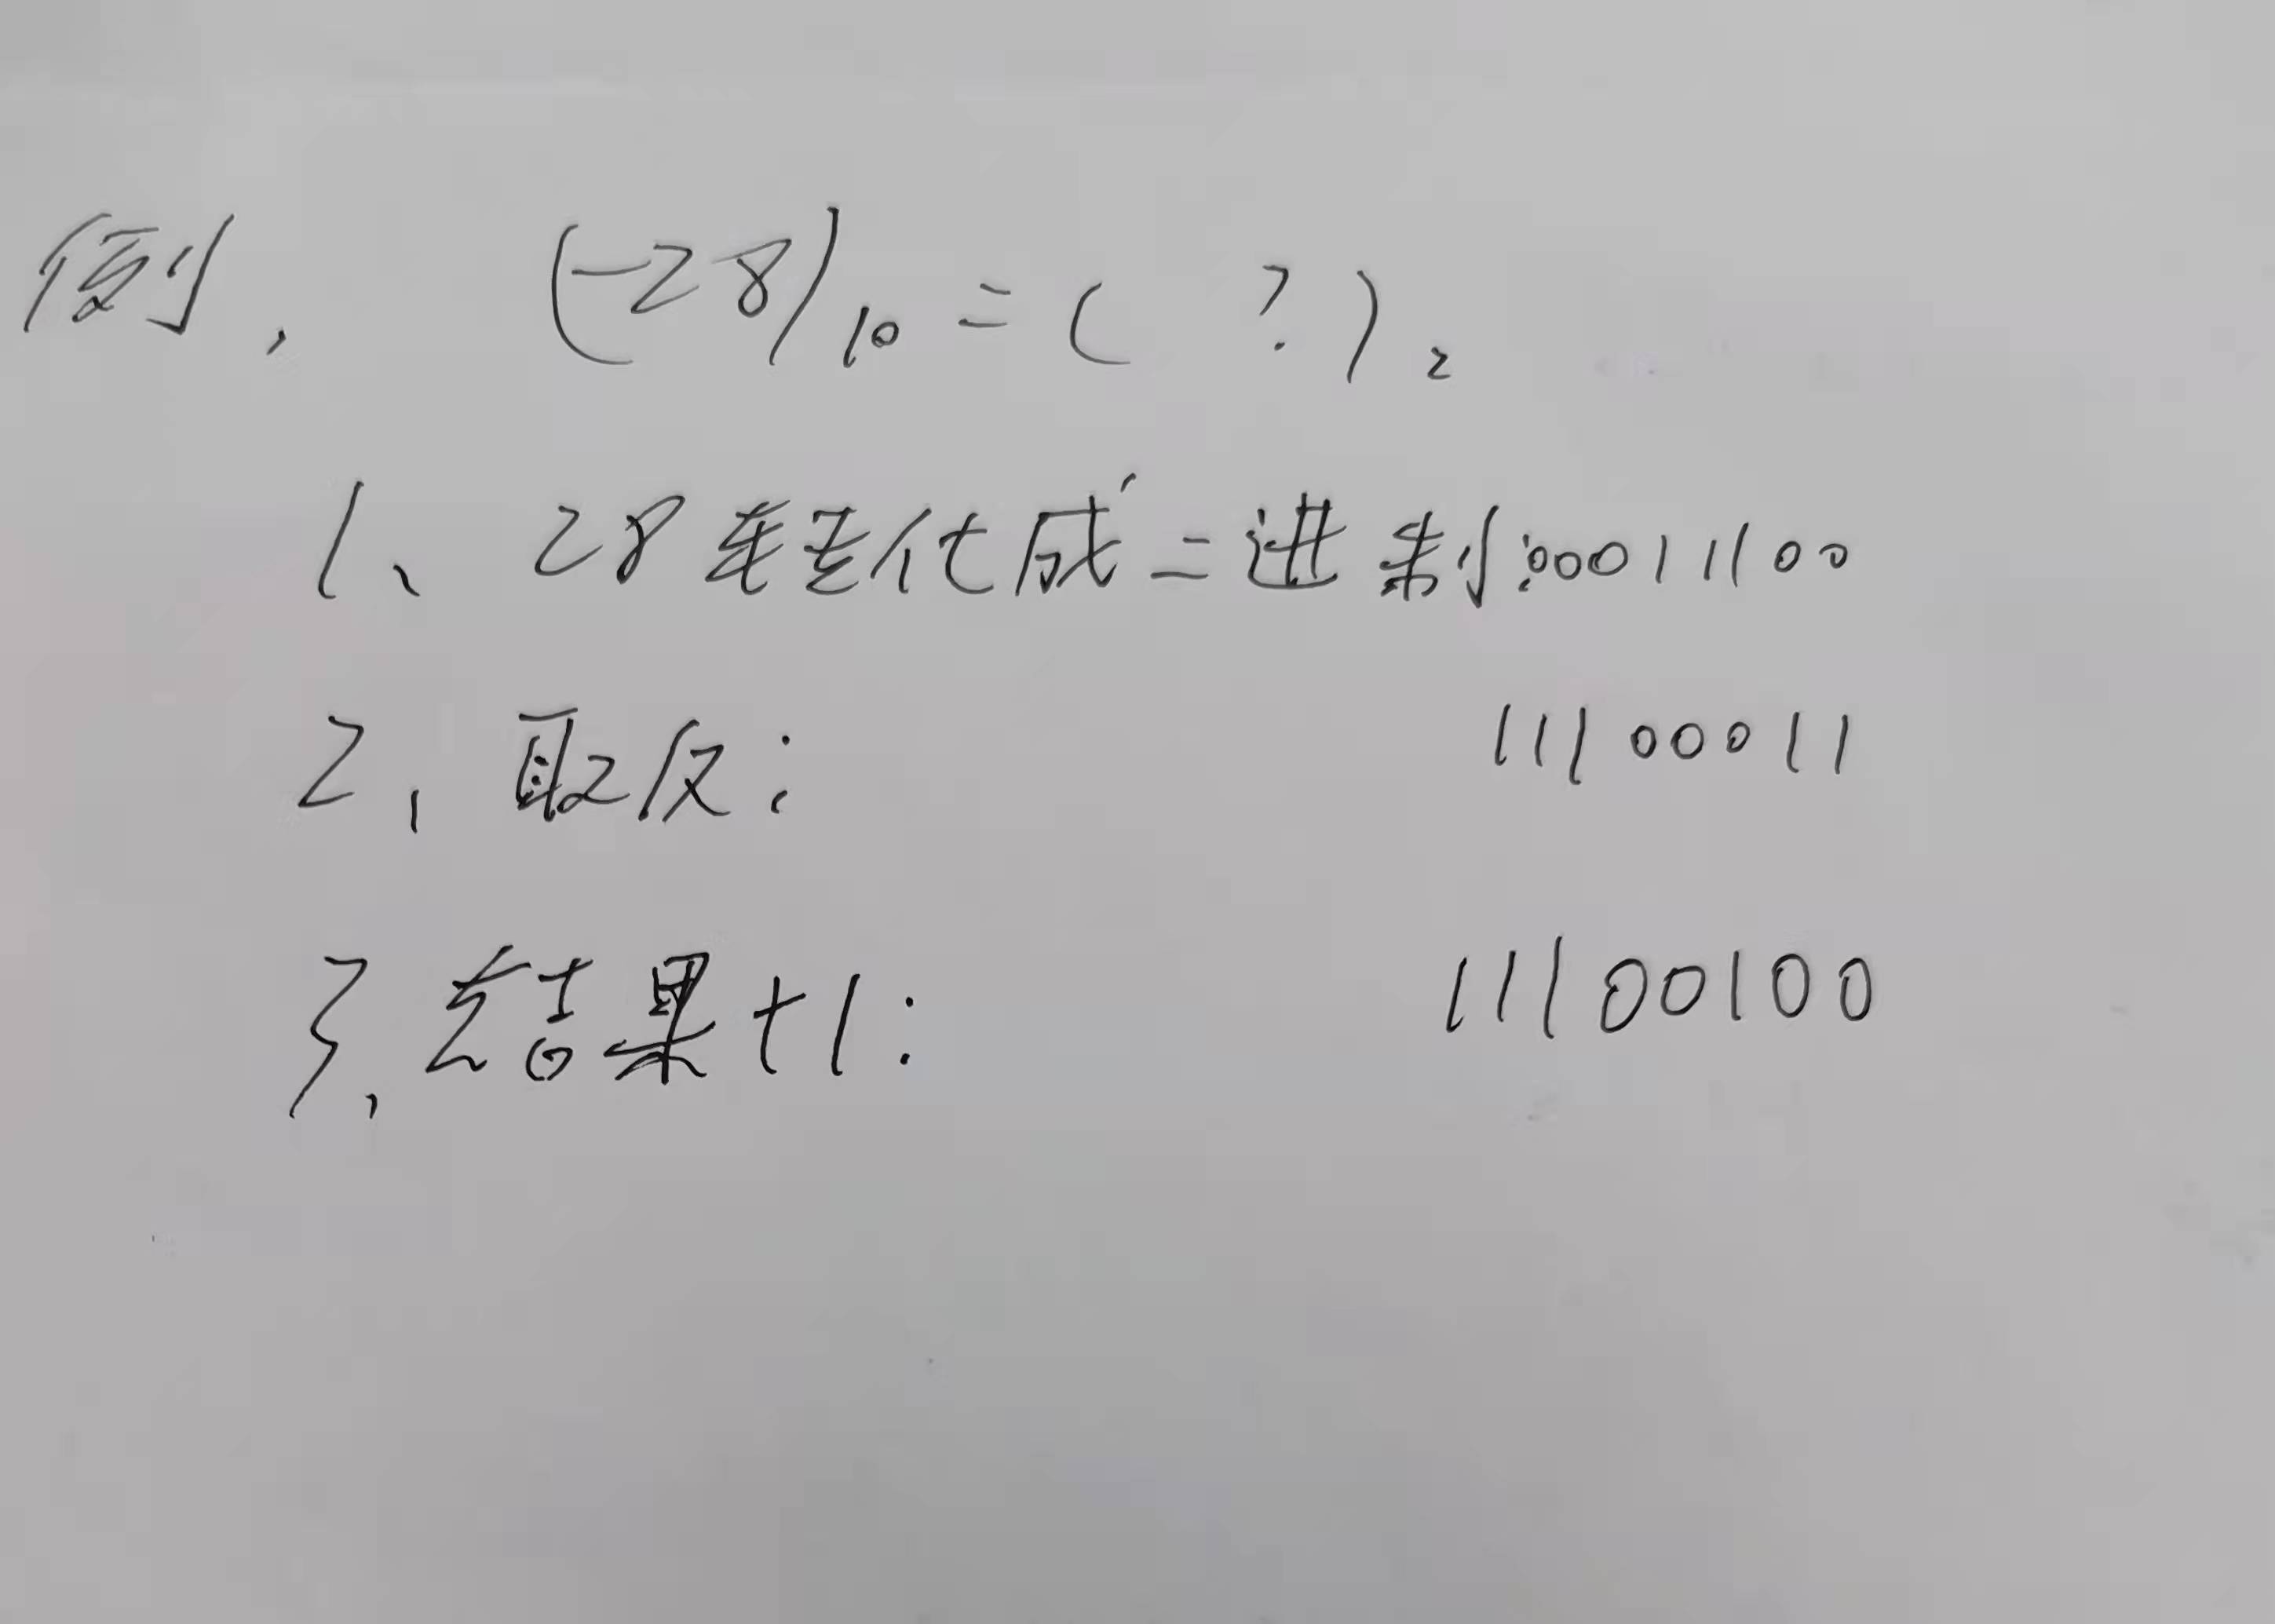 例, (-28)10 = ( ? )2
1、28转化成二进制:00011100
2, 取反: 11100011
3, 结果+1: 11100100